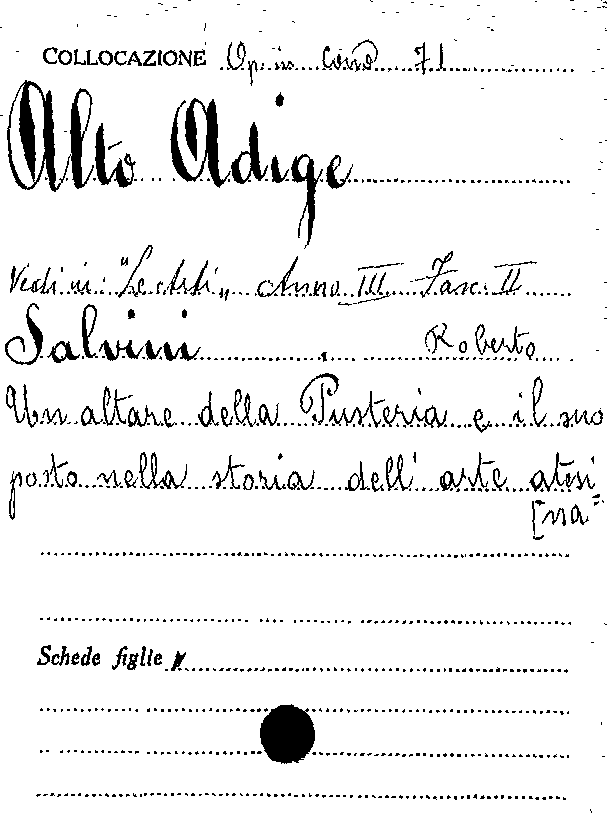 COLLOCAZIONE Op. in cons 71
Alto Adige
Vedi in: "Le Arti" Anno III Fasc. II
Salvini, Roberto
Un altare della Pusteria e il suo
posto nella storia dell'arte atesi
[na=
Schede figlie